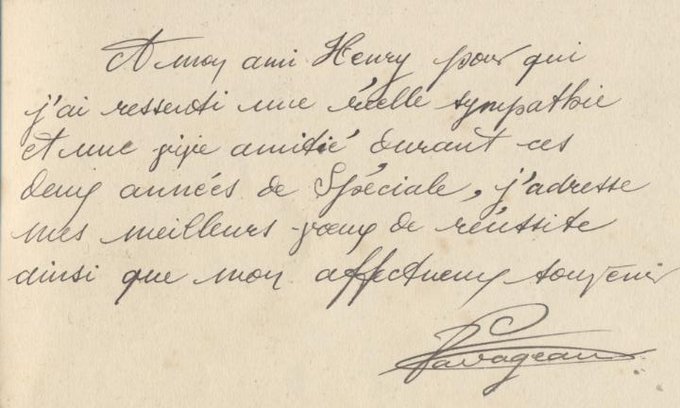 A mon ami Henry pour qui
j'ai ressenti une réelle sympathie
et une vive amitié durant ces
deux années de Spéciale, j'adresse
mes meilleurs vœux de réussite
ainsi que mon affectueux souvenir